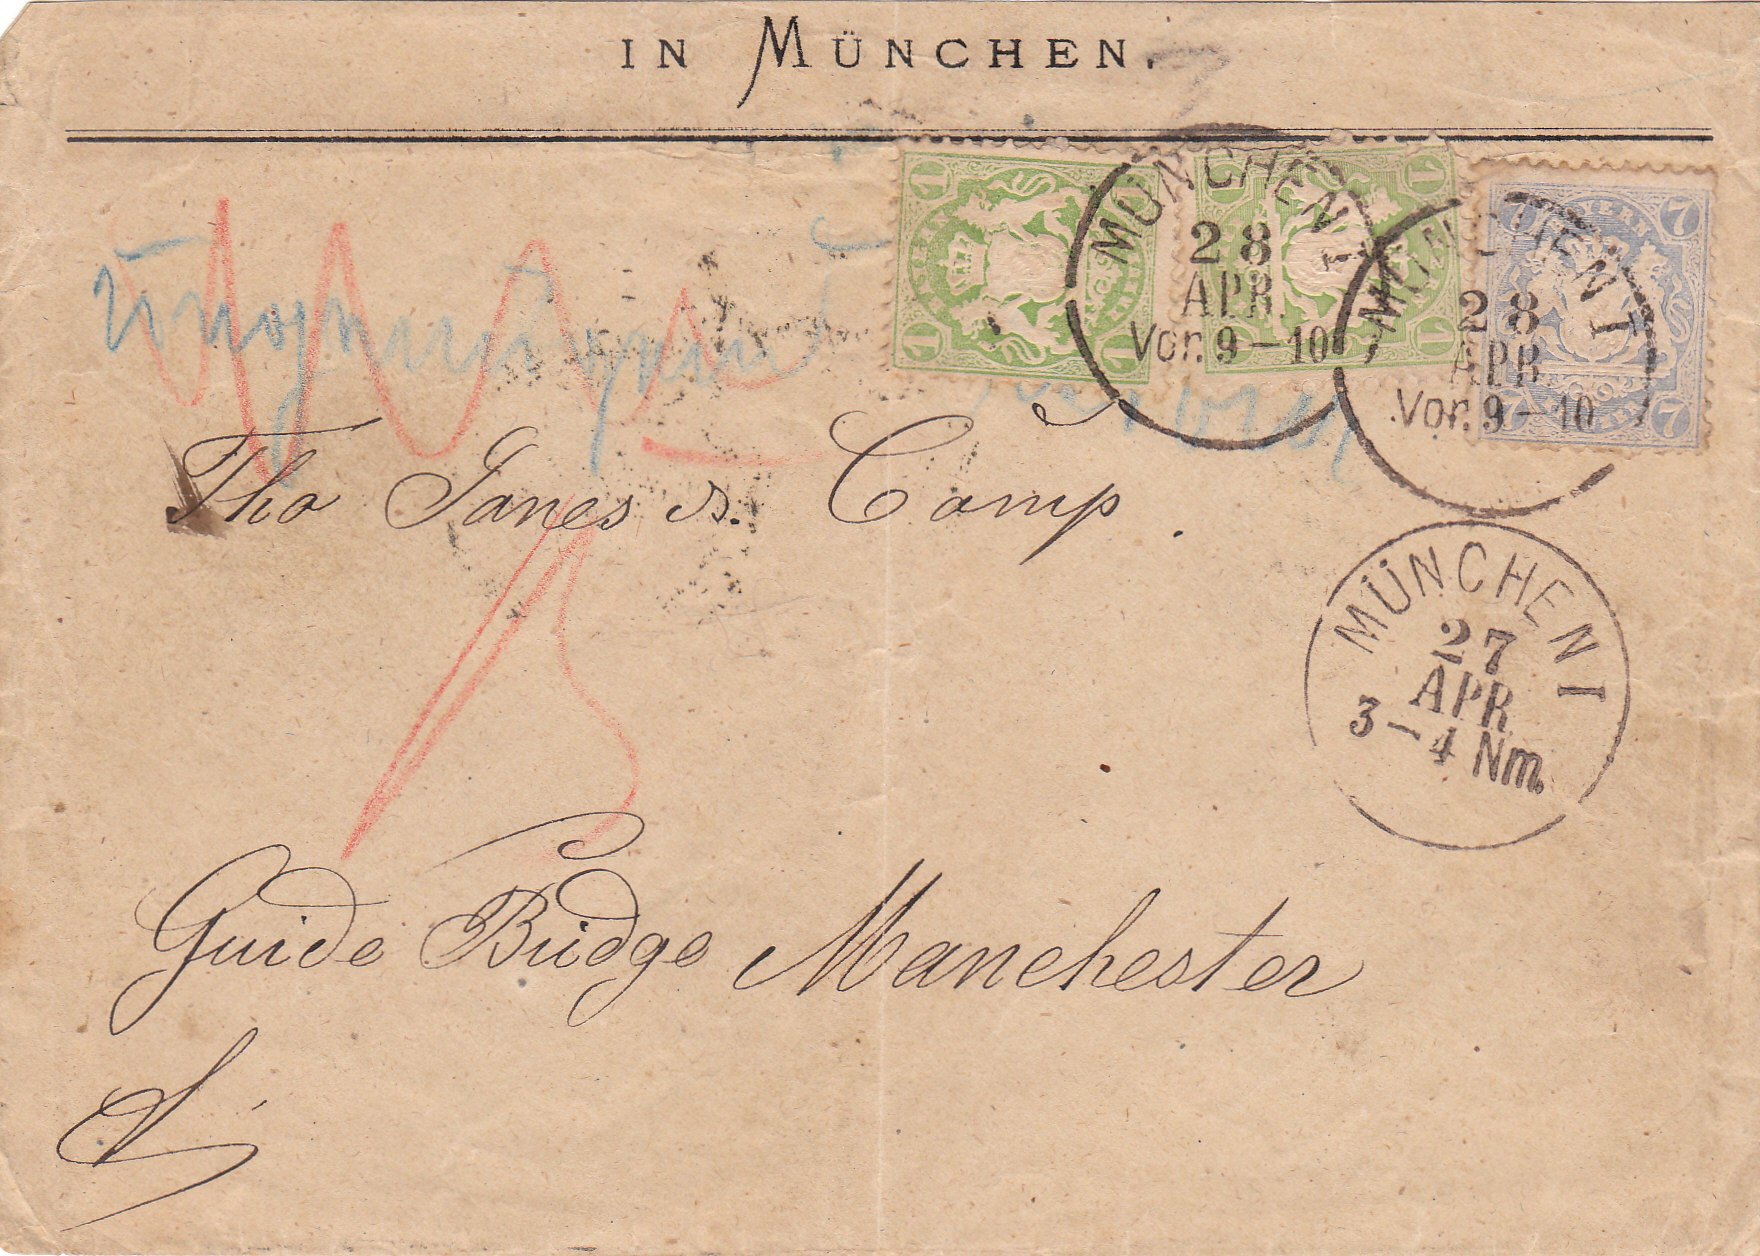 IN MÜNCHEN.
1 1 1 1
1 1 1
BAYERN
7 7 7 7
MÜNCHEN I
28
APR.
Vor. 9-10
MÜNCHEN I
28
APR.
Vor. 9-10
Tho Janes s. Comp.
MÜNCHEN I
27
APR.
3-4 Nm.
Guide Bridge Manchester